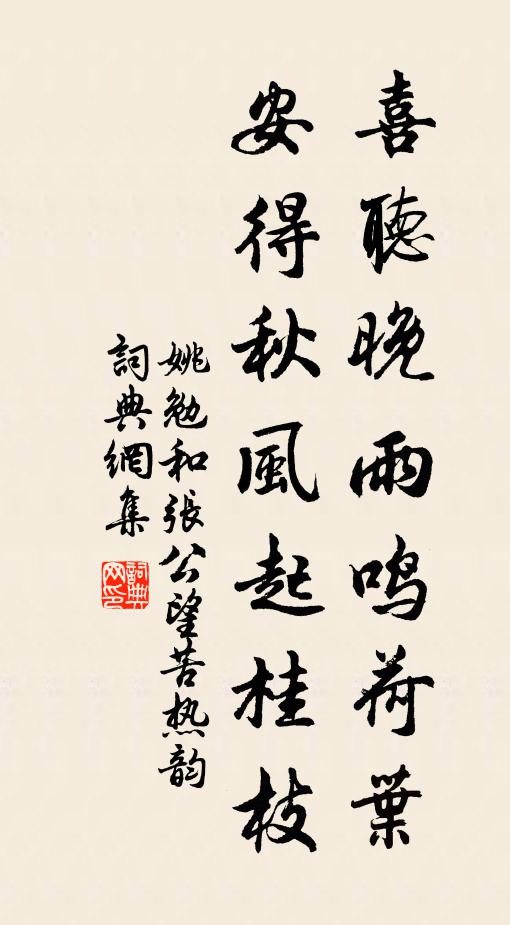 喜聽晚雨鳴荷葉
安得秋風起桂枝
姚勉和張公望苦热韵
詞典網集
詞典网印